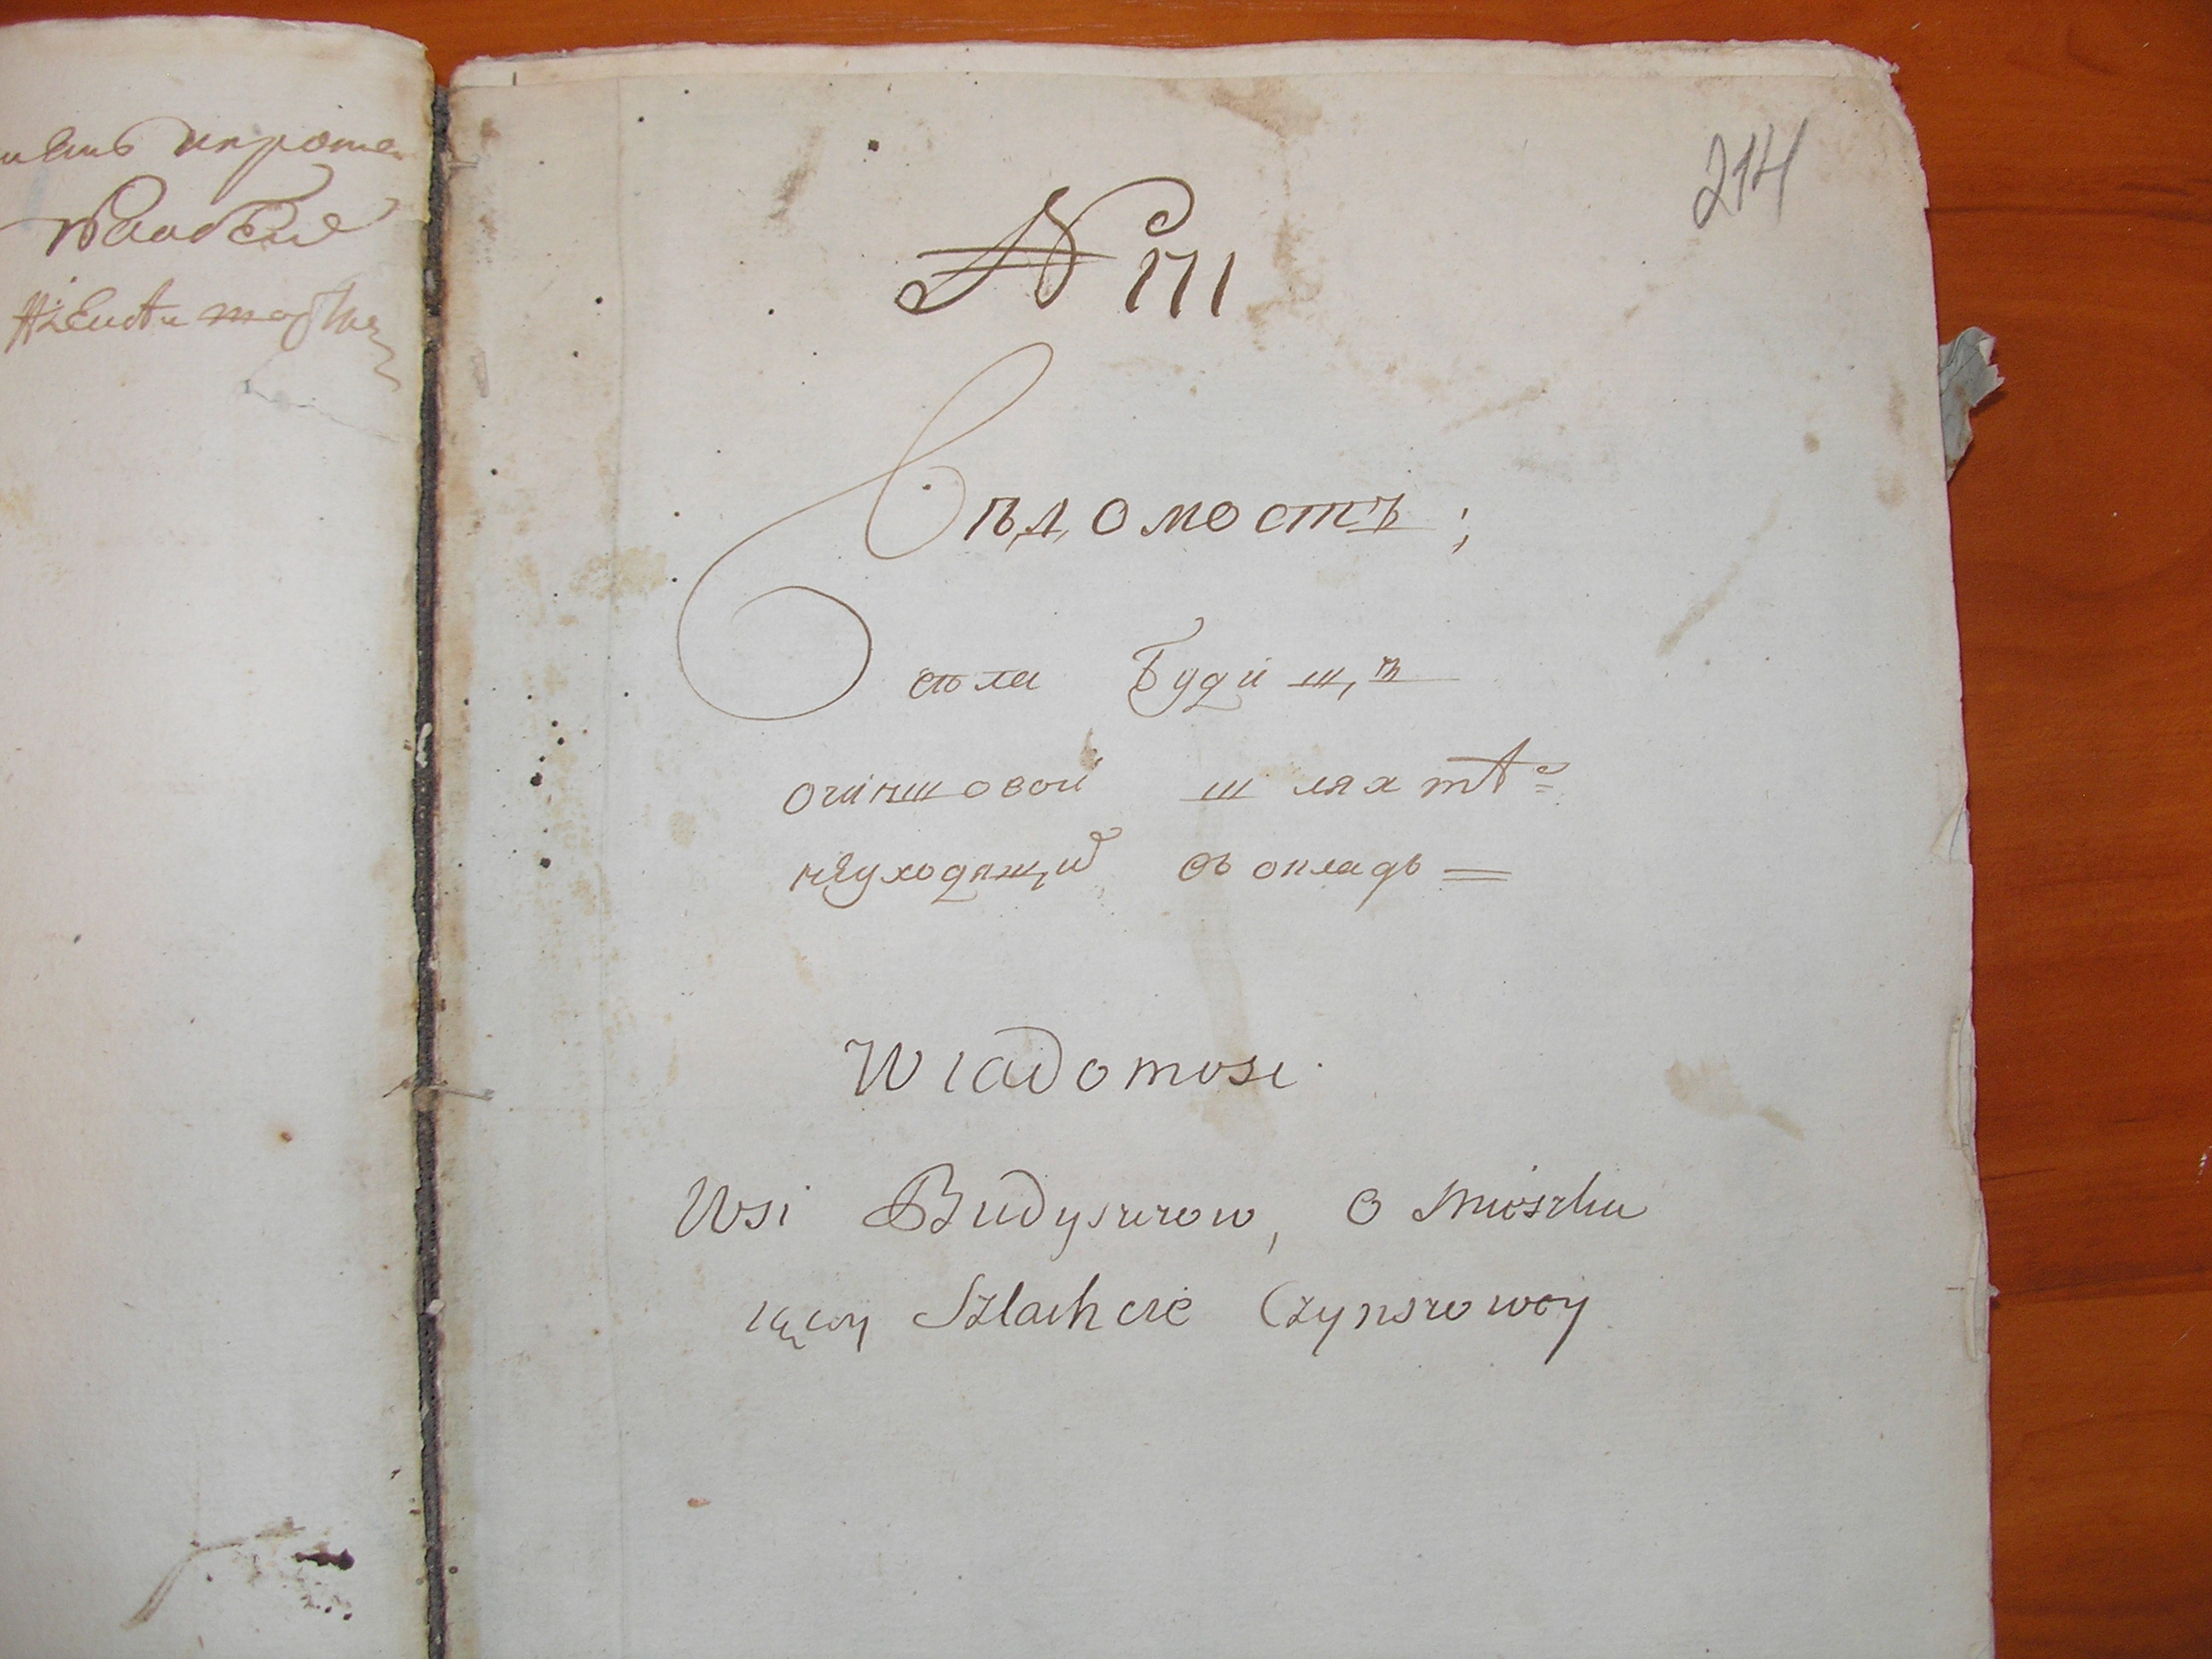 214
№ 171
Вѣдомостъ;
сѣла Будищъ
очіншовой шляхтѣ=
неуходящій въ окладъ =
Wiadomosc
Wsi Budyszczow, O Mieszka
iącey Szlachcie Czynszowey